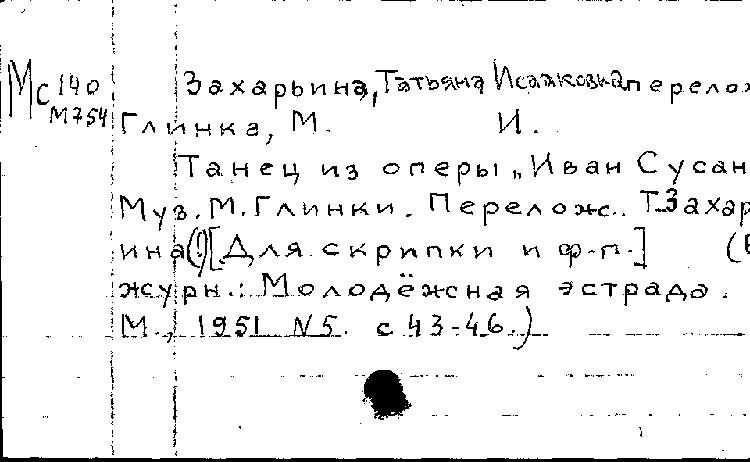 Мс 140 Захарьина, Татьяна Исааковна перелож
М754 Глинка, М. И.
Танец из оперы „Иван Сусан
Муз. М. Глинки. Перелож. Т. Захар
ина(!) [Для скрипки и ф-п.] (В
журн.: Молодёжная эстрада.
М., 1951 N5. с 43-46.)